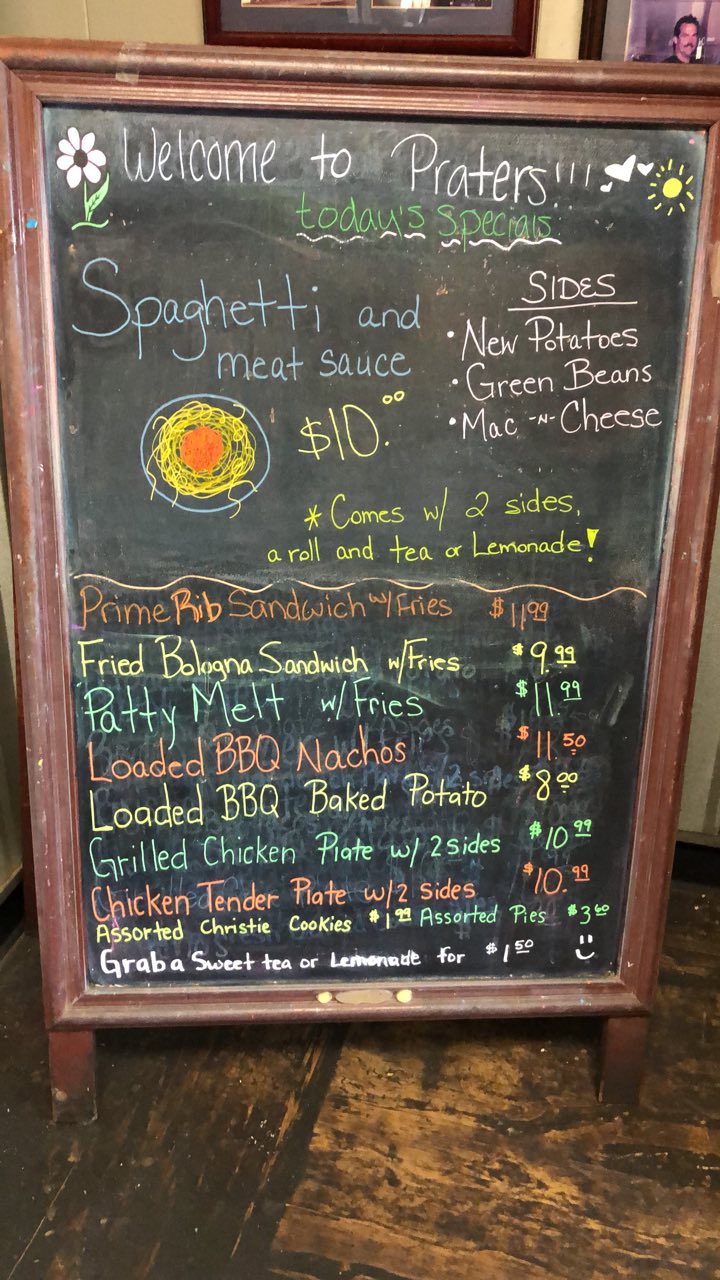 Welcome to Praters!!!
today's specials
Spaghetti and
meat sauce
$10.00
SIDES
• New Potatoes
• Green Beans
• Mac -N- Cheese
* Comes w/ 2 sides,
a roll and tea or Lemonade!
Prime Rib Sandwich w/Fries $11.99
Fried Bologna Sandwich w/Fries $9.99
Patty Melt w/ Fries $11.99
Loaded BBQ Nachos $11.50
Loaded BBQ Baked Potato $8.00
Grilled Chicken Plate w/ 2 sides $10.99
Chicken Tender Plate w/2 sides $10.99
Assorted Christie Cookies $1.99 Assorted Pies
Grab a Sweet tea or Lemonade for $1.50